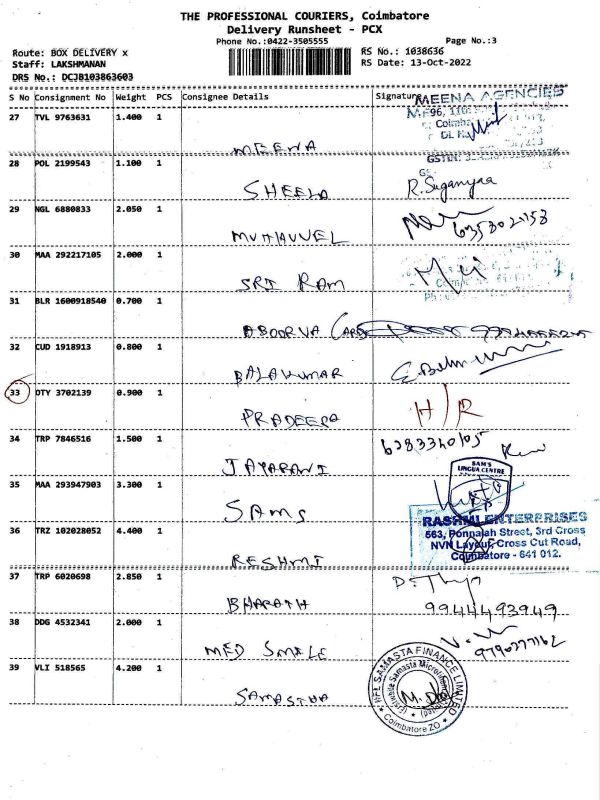 THE PROFESSIONAL COURIERS, Coimbatore
Delivery Runsheet - PCX
Phone No.:0422-3505555
Page No.:3
Route: BOX DELIVERY x
RS No.: 1038636
Staff: LAKSHMANAN
RS Date: 13-Oct-2022
DRS No.: DCJB103863603
S No Consignment No Weight PCS Consignee Details Signature
MEENA AGENCIES
27 TVL 9763631 1.400 1
MEENA
28 POL 2199543 1.100 1
SHEELA R.Suganyaa
29 NGL 6880833 2.050 1
MUTHUVEL
30 MAA 292217105 2.000 1
SRI RAM
31 BLR 1600918540 0.700 1
ABOORVA
32 CUD 1918913 0.800 1
BALAKUMAR
33 OTY 3702139 0.900 1
PRADEEPA H/R
34 TRP 7846516 1.500 1 6283340105
JAYARANI
SAM'S
LINGUA CENTRE
35 MAA 293947903 3.300 1
SAMS
RASHMI ENTERPRISES
36 TRZ 102028052 4.400 1
563, Ponnaiah Street, 3rd Cross
NVN Layout, Cross Cut Road,
Coimbatore - 641 012.
RESHMI
37 TRP 6020698 2.850 1
BHARATH 9944493949
38 DDG 4532341 2.000 1
MED SMILE 9790277162
39 VLI 518565 4.200 1
SAMASTHA
IIFL SAMASTA FINANCE LIMITED
Coimbatore ZO